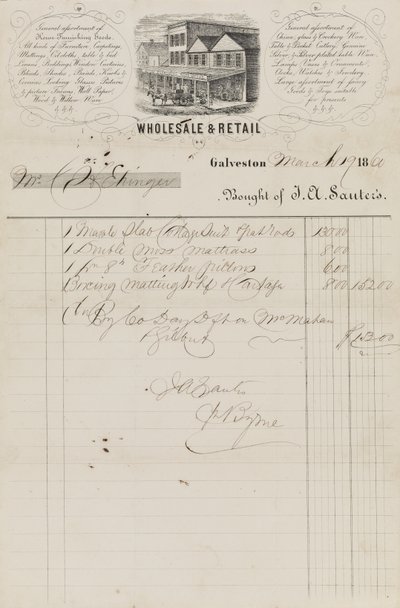 General assortment of
House Furnishing Goods.
All kinds of Furniture Carpetings,
Mattings, Oilcloths, table & bed
Linens, Beddings, Window Curtains,
Blinds, Shades, Bands, Knobs &
Cornices, Looking Glasses, Pictures
& picture Frames, Wall Paper,
Wood & Willow Ware
General assortment of
China, glass & Crockery Ware
Table & Pocket Cutlery, German
Silver & Silver plated table Ware
Lamps, Vases & Ornaments
Clocks, Watches & Jewelry.
Large assortment of fancy
Goods & toys suitable
for presents
WHOLESALE & RETAIL
Galveston March 19 1860
Mr.
Bought of J. A. Sauters.
1 Marble Slab Cottage Suit 130.00
1 Double Moss Mattrass 8.00
1 8 Feather pillows 6.00
Boxing Matting 8.00 152.00
McMahan
Gilbert $ 152.00
JA Sauters
Byrne